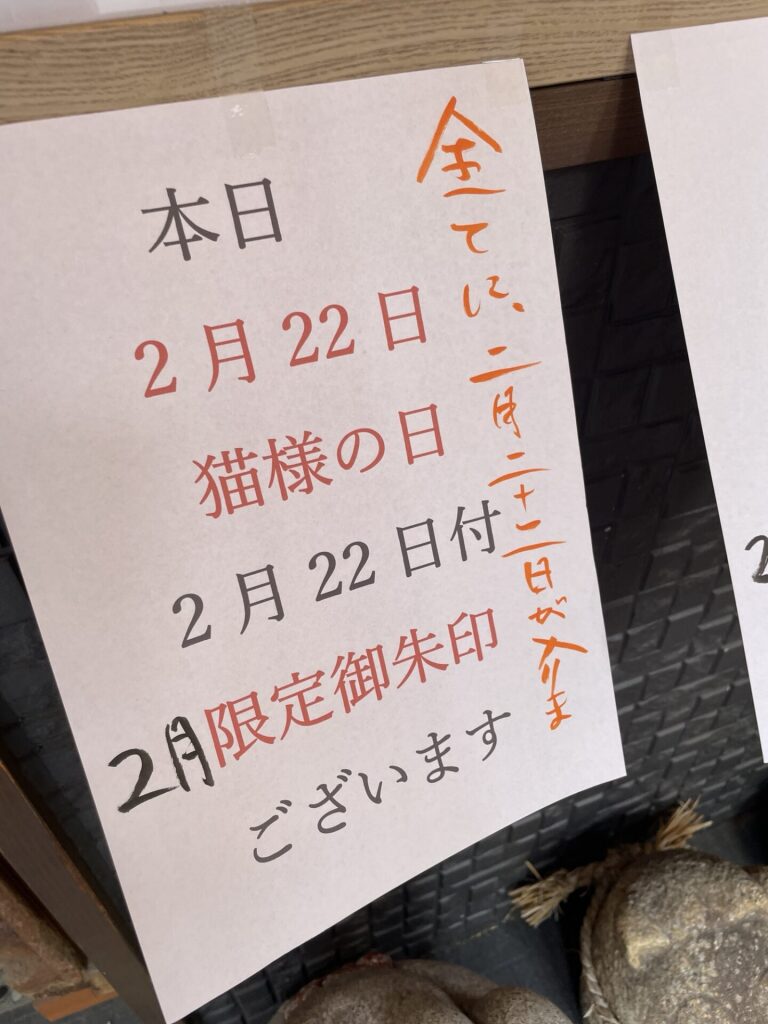 本日
2月22日
猫様の日
2月22日付
2月限定御朱印
ございます
全てに、二月二十二日が入りま
2